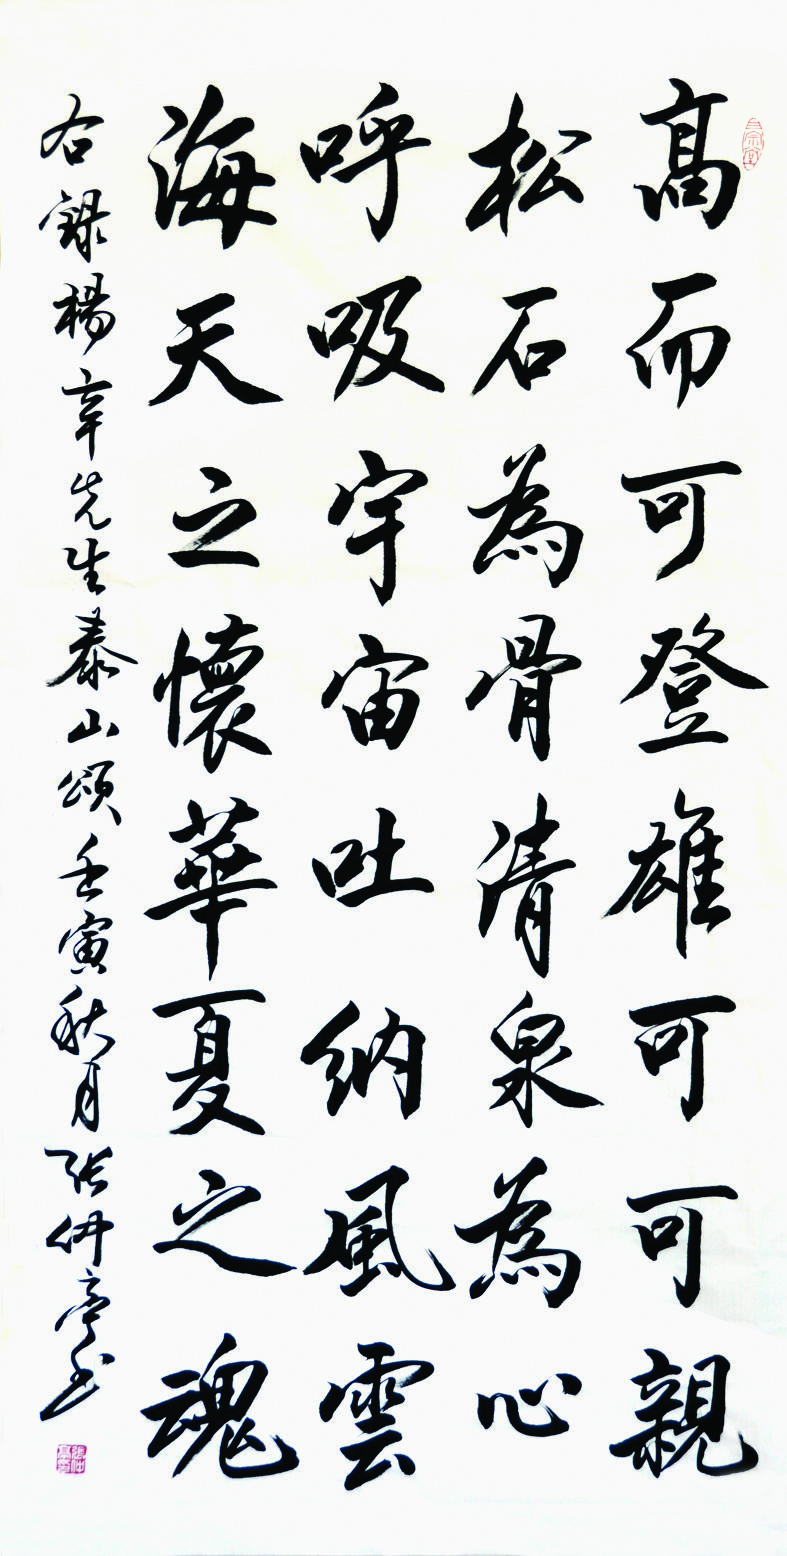 高而可登雄可可親
松石為骨清泉為心
呼吸宇宙吐納風雲
海天之懷華夏之魂
右錄楊辛先生泰山頌壬寅秋月張仲亭书